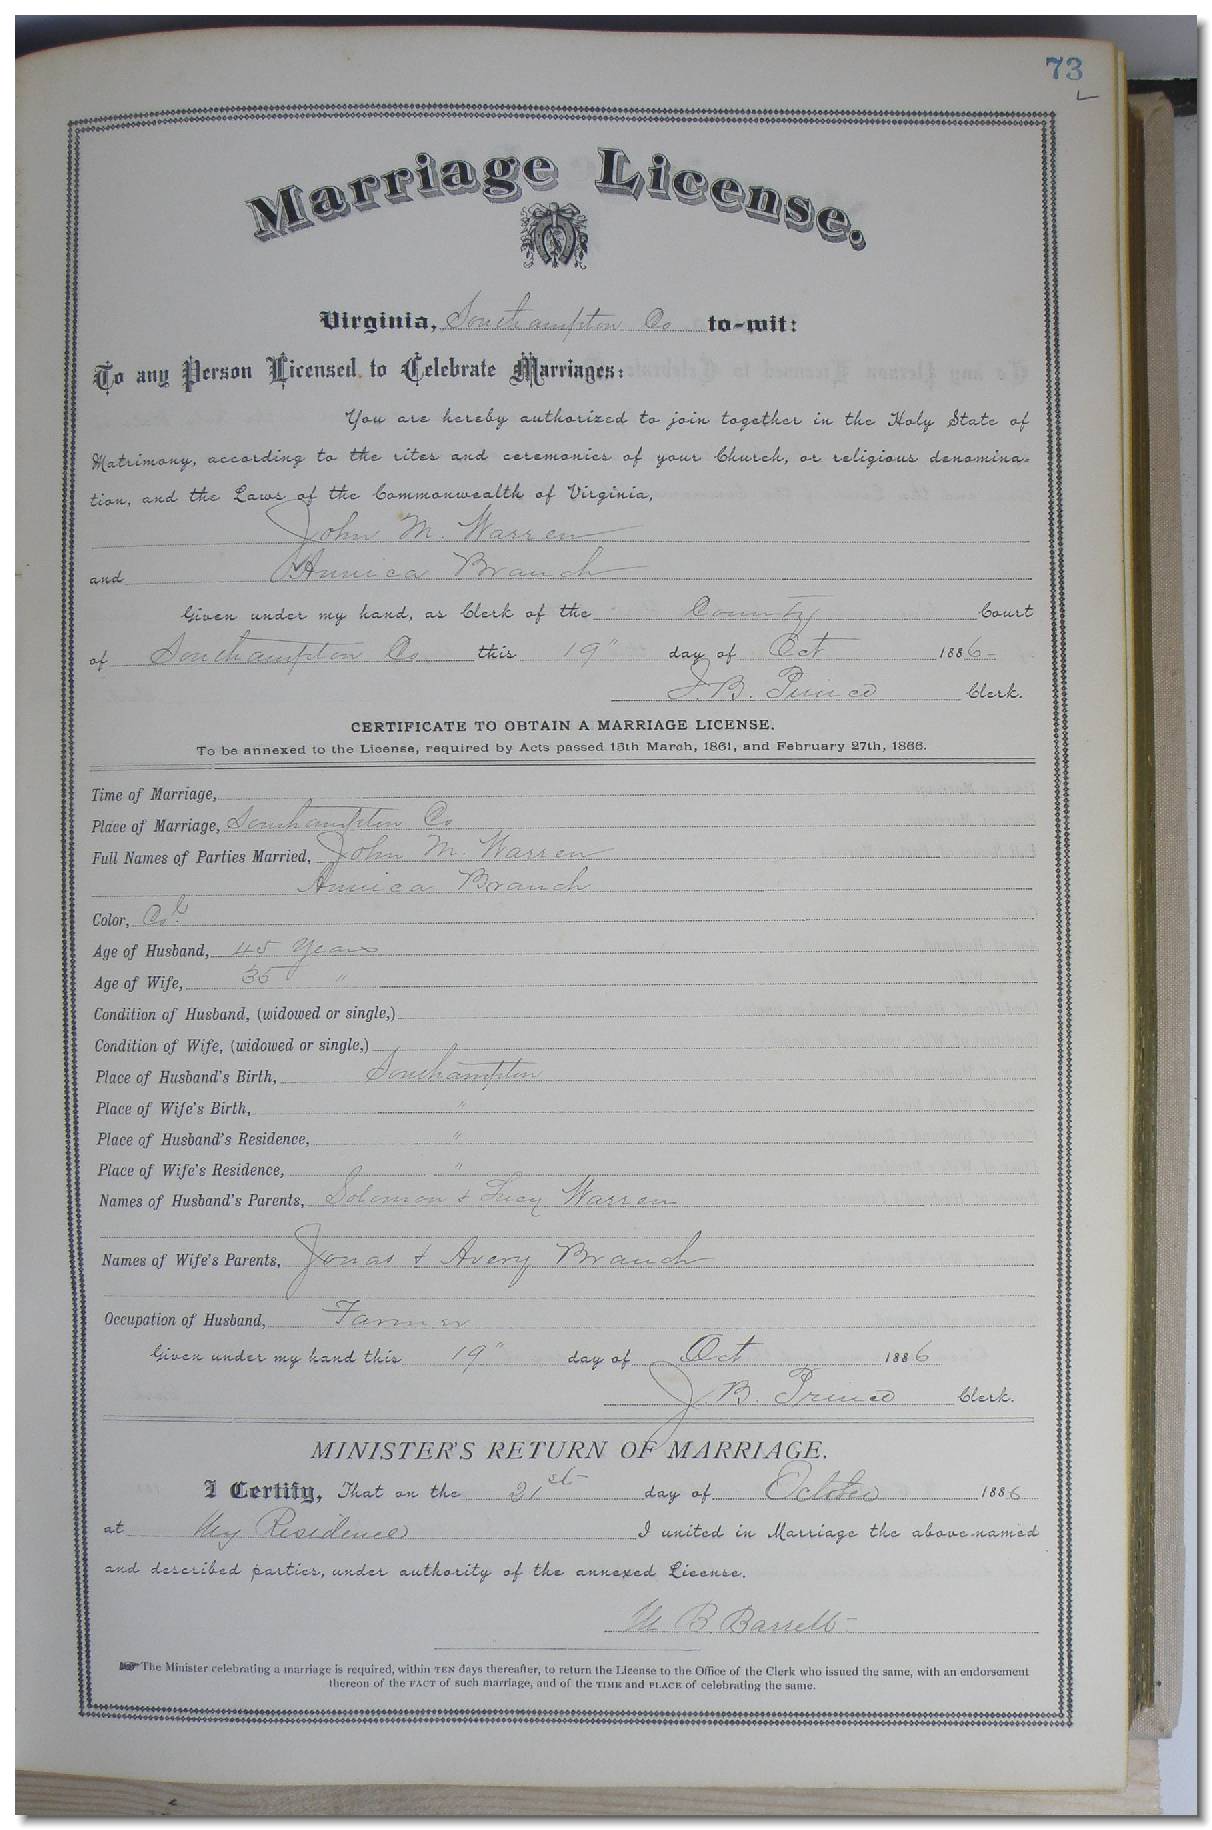 73
Marriage License.
Virginia, Southampton Co to-wit:
To any Person Licensed to Celebrate Marriages:
You are hereby authorized to join together in the Holy State of
Matrimony, according to the rites and ceremonies of your Church, or religious denomina-
tion, and the Laws of the Commonwealth of Virginia,
John M. Warren
and Annica Branch
Given under my hand, as Clerk of the County Court
of Southampton Co this 19" day of Oct 1886-
J. B. Prince Clerk.
CERTIFICATE TO OBTAIN A MARRIAGE LICENSE.
To be annexed to the License, required by Acts passed 15th March, 1861, and February 27th, 1866.
Time of Marriage,
Place of Marriage, Southampton Co
Full Names of Parties Married, John M. Warren
Annica Branch
Color, Col
Age of Husband, 45 Years
Age of Wife, 35 "
Condition of Husband, (widowed or single,)
Condition of Wife, (widowed or single,)
Place of Husband's Birth, Southampton
Place of Wife's Birth, "
Place of Husband's Residence, "
Place of Wife's Residence, "
Names of Husband's Parents, Solomon & Lucy Warren
Names of Wife's Parents, Jonas & Avery Branch
Occupation of Husband, Farmer
Given under my hand this 19" day of Oct 1886
J. B. Prince Clerk.
MINISTER'S RETURN OF MARRIAGE.
I Certify, That on the 21st day of October 1886
at My Residence I united in Marriage the above-named
and described parties, under authority of the annexed License.
M B Barrett
The Minister celebrating a marriage is required, within TEN days thereafter, to return the License to the Office of the Clerk who issued the same, with an endorsement
thereon of the FACT of such marriage, and of the TIME and PLACE of celebrating the same.